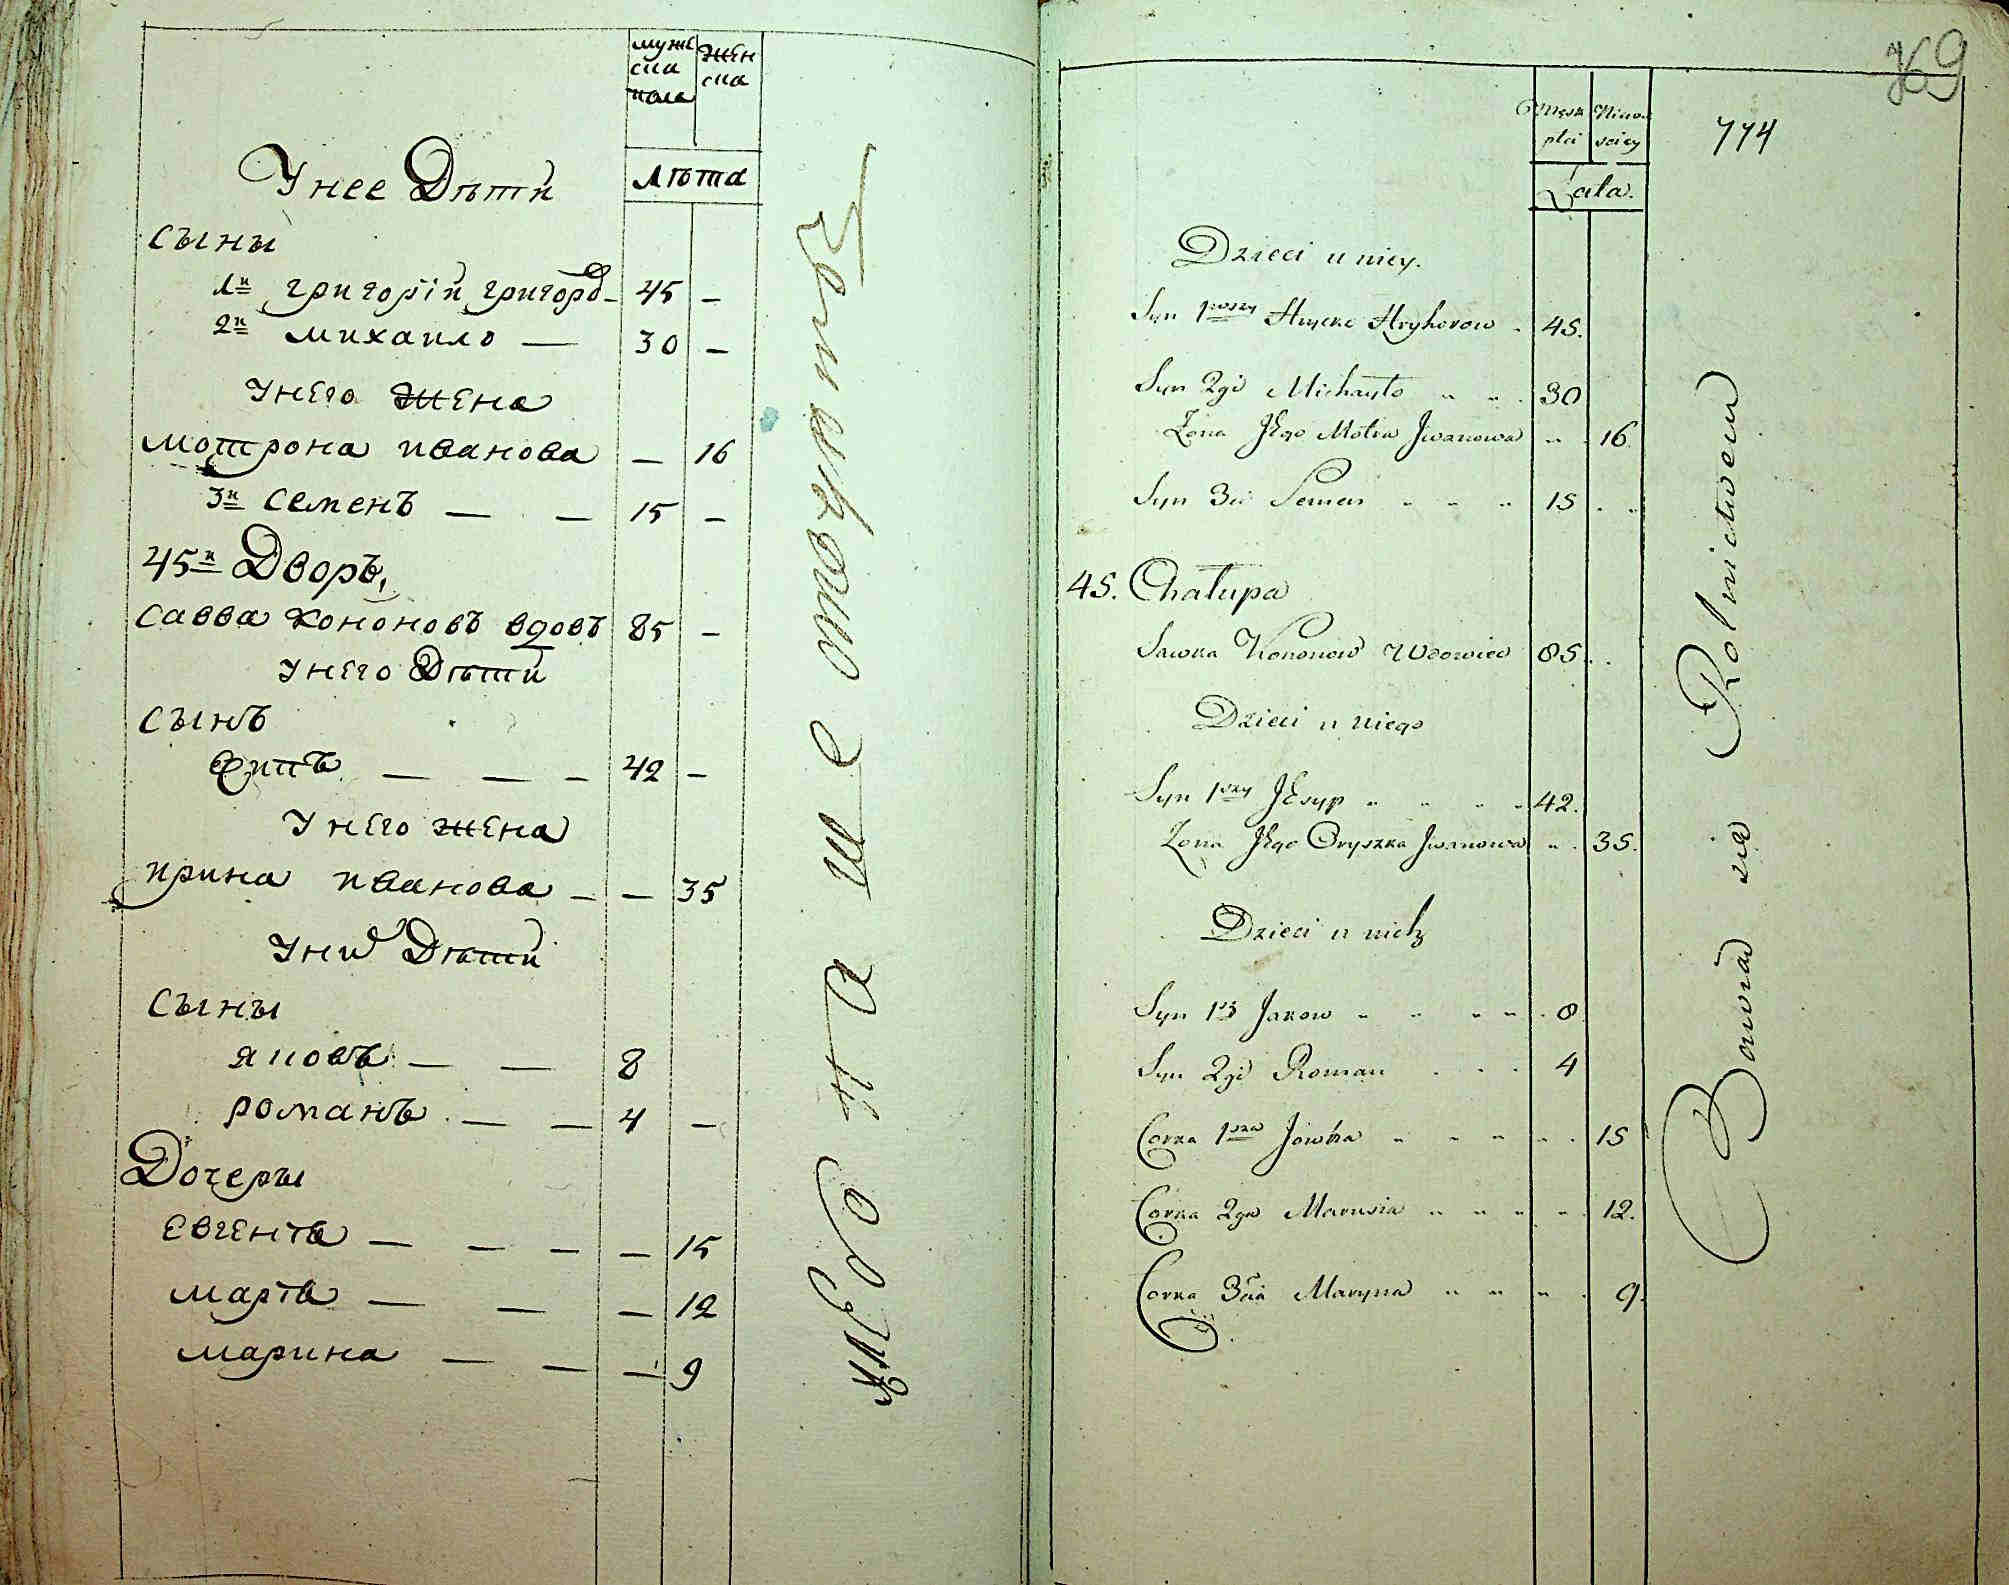 мужс
ска
пола
жен
ска
лѣта
У нее Дѣти
сыны
1й григорій григоро 45 —
2й михаило — 30 —
У него жена
мотрона иванова — 16
3й семенъ — — 15 —
45й Дворъ,
савва кононовъ вдовъ 85 —
У него Дѣти
сынъ
— — — 42 —
У него жена
ирина иванова — — 35
У них Дѣти
сыны
яковъ — — 8
романъ — — 4 —
Дочеры
евгенія — — — — 15
марія — — — 12
марина — — — 9
769
774
Męsk
płci
Niew
sciey
Lata.
Dzieci u niey.
Syn 1wszy Hryhorow 45.
Syn 2gi Michayło 30
Żona Jego Motra Jwanowa 16
Syn 3ci Semen 15
45. Chałupa
Sawka Kononow Wdowiec 85
Dzieci u niego
Syn 1szy Jesyp 42.
Żona Jego Oryszka Jwanowa 35.
Dzieci u nich
Syn 1szy Jakow 8
Syn 2gi Roman 4
Corka 1sza Jowka 15
Corka 2ga Marusia 12.
Corka 3cia Maryna 9.
Bawią się Rolnictwem